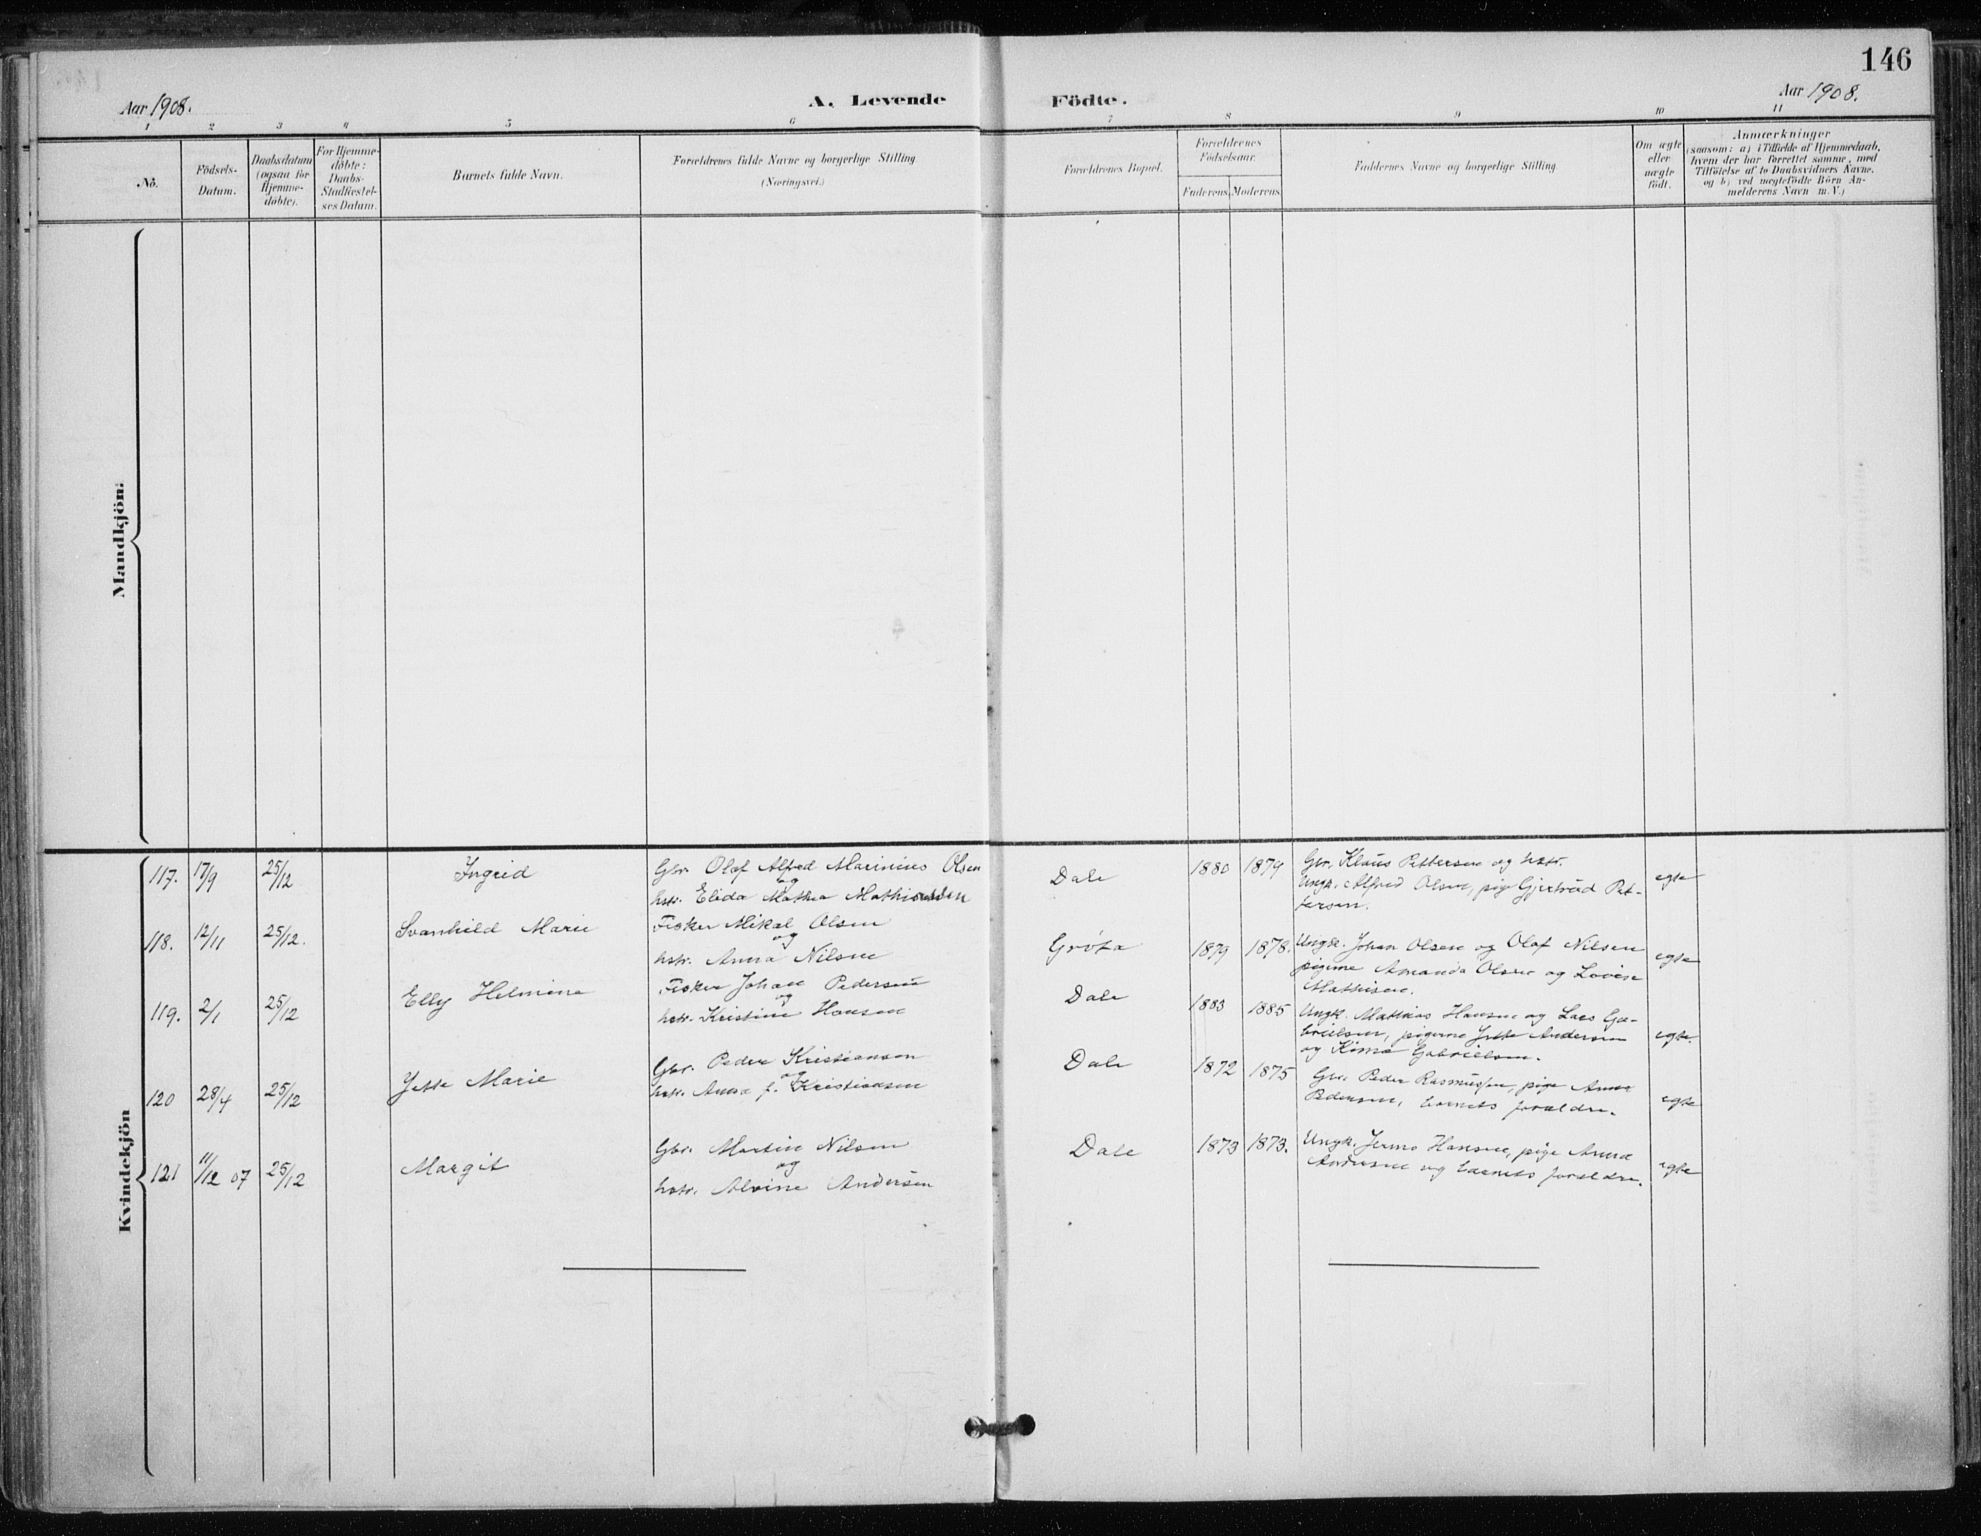 146
Aar 1908.
A. Levende Födte.
Aar 1908.
1 2 3 4 5 6 7 8 9 10 11
No.
Födsels-
Datum.
Daabsdatum
(ogsaa for
Hjemme-
døbte).
For Hjemme-
døbte:
Daabs-
Stadfæstel-
ses Datum.
Barnets fulde Navn.
Forældrenes fulde Navne og borgerlige Stilling
(Næringsvei.)
Forældrenes Bopæl.
Forældrenes
Fødselsaar.
Faderens. Moderens.
Faddernes Navne og borgerlige Stilling.
Om ægte
eller
uægte
født.
Anmærkninger
(saasom: a) i Tilfælde af Hjemmedaab,
hvem der har forrettet samme, med
Tilføielse af to Daabsvidners Navne,
og b) ved uægtefödte Börn An-
melderens Navn m. V.)
Mandkjön:
Kvindekjön
117. 17/9 25/12 Ingrid
Gbr. Olaf Alfred Marinius Olsen
og
hstr. Elida Mathea
Dale 1880 1879
Gbr. Klaus Pettersen og hstr.
Ungk. Alfred Olsen, pige Gjertrud Pet-
tersen.
egte
118. 12/11 25/12. Svanhild Marie
Fisker Mikal Olsen
og
hstr. Anna Nilsen
Grøta 1879 1878.
Ungk. Johan Olsen og Olaf Nilsen
pigerne Amanda Olsen og Lovise
Mathisen.
egte
119. 2/1 25/12 Elly Helmine
Fisker Johan Pedersen
og
hstr. Kristine Hansen
Dale 1883 1885
Ungk. Mathias Hansen og Lars Ga-
brielsen, pigerne Jette Andersen
og Gabrielsen.
egte.
120 28/4 25/12 Jette Marie
Gbr. Peder Kristiansen
og
hstr. Anna f. Kristiansen
Dale 1872 1875
Gbr. Peder Rasmussen, pige Anna
Pedersen, barnets forældre.
egte
121 11/12 07 25/12 Margit
Gbr. Martin Nilsen
og
hstr. Alvine Andersen
Dale 1873 1873.
Ungk. Hansen, pige Anna
Andersen og barnets forældre.
egte